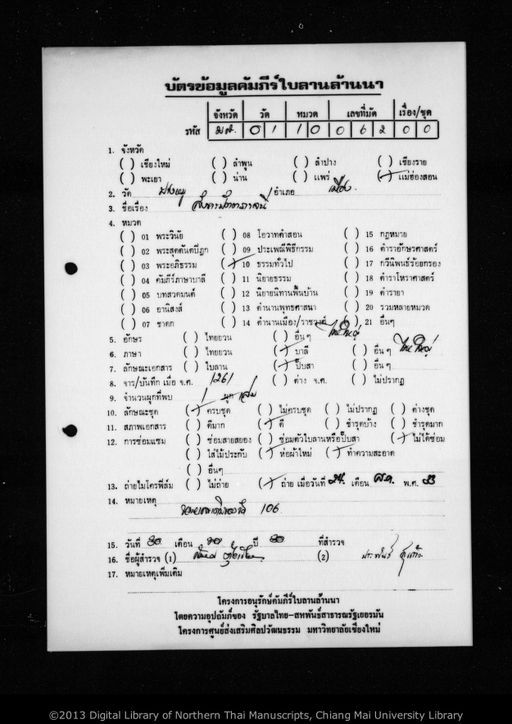 บัตรข้อมูลคัมภีร์ใบลานล้านนา
จังหวัด วัด หมวด เลขที่มัด เรื่อง/ชุด
รหัส มส. 0 1 1 0 0 6 2 0 0
1. จังหวัด
( ) เชียงใหม่ ( ) ลำพูน ( ) ลำปาง ( ) เชียงราย
( ) พะเยา ( ) น่าน ( ) แพร่ (/) แม่ฮ่องสอน
2. วัด อำเภอ เมือง
3. ชื่อเรื่อง
4. หมวด
( ) 01 พระวินัย ( ) 08 โอวาทคำสอน ( ) 15 กฎหมาย
( ) 02 พระสุตตันตปิฎก ( ) 09 ประเพณีพิธีกรรม ( ) 16 ตำราอักษรศาสตร์
( ) 03 พระอภิธรรม (/) 10 ธรรมทั่วไป ( ) 17 กวีนิพนธ์ร้อยกรอง
( ) 04 คัมภีร์ภาษาบาลี ( ) 11 นิยายธรรม ( ) 18 ตำราโหราศาสตร์
( ) 05 บทสวดมนต์ ( ) 12 นิยายนิทานพื้นบ้าน ( ) 19 ตำรายา
( ) 06 อานิสงส์ ( ) 13 ตำนานพุทธศาสนา ( ) 20 รวมหลายหมวด
( ) 07 ชาดก ( ) 14 ตำนานเมือง/ราชวงศ์ ( ) 21 อื่นๆ
5. อักษร ( ) ไทยยวน (/) อื่นๆ ไทใหญ่
6. ภาษา ( ) ไทยยวน (/) บาลี ( ) อื่นๆ ไทใหญ่
7. ลักษณะเอกสาร ( ) ใบลาน (/) พับสา ( ) อื่นๆ
8. จาร/บันทึก เมื่อ จ.ศ. 1261 ( ) ต่าง จ.ศ. ( ) ไม่ปรากฏ
9. จำนวนผูกที่พบ 1 ผูก เล่ม
10. ลักษณะชุด (/) ครบชุด ( ) ไม่ครบชุด ( ) ไม่ปรากฏ ( ) ต่างชุด
11. สภาพเอกสาร ( ) ดีมาก (/) ดี ( ) ชำรุดบ้าง ( ) ชำรุดมาก
12. การซ่อมแซม ( ) ซ่อมสายสยอง ( ) ซ่อมตัวใบลานหรือปั๊บสา (/) ไม่ได้ซ่อม
( ) ใส่ไม้ประกับ (/) ห่อผ้าใหม่ (/) ทำความสะอาด
( ) อื่นๆ
13. ถ่ายไมโครฟิล์ม ( ) ไม่ถ่าย (/) ถ่าย เมื่อวันที่ 24 เดือน ต.ค. พ.ศ. 33
14. หมายเหตุ
106
15. วันที่ 30 เดือน 10 ปี 30 ที่สำรวจ
16. ชื่อผู้สำรวจ (1) (2)
17. หมายเหตุเพิ่มเติม
โครงการอนุรักษ์คัมภีร์ใบลานล้านนา
โดยความอุปถัมภ์ของ รัฐบาลไทย-สหพันธ์สาธารณรัฐเยอรมัน
โครงการศูนย์ส่งเสริมศิลปวัฒนธรรม มหาวิทยาลัยเชียงใหม่
©2013 Digital Library of Northern Thai Manuscripts, Chiang Mai University Library